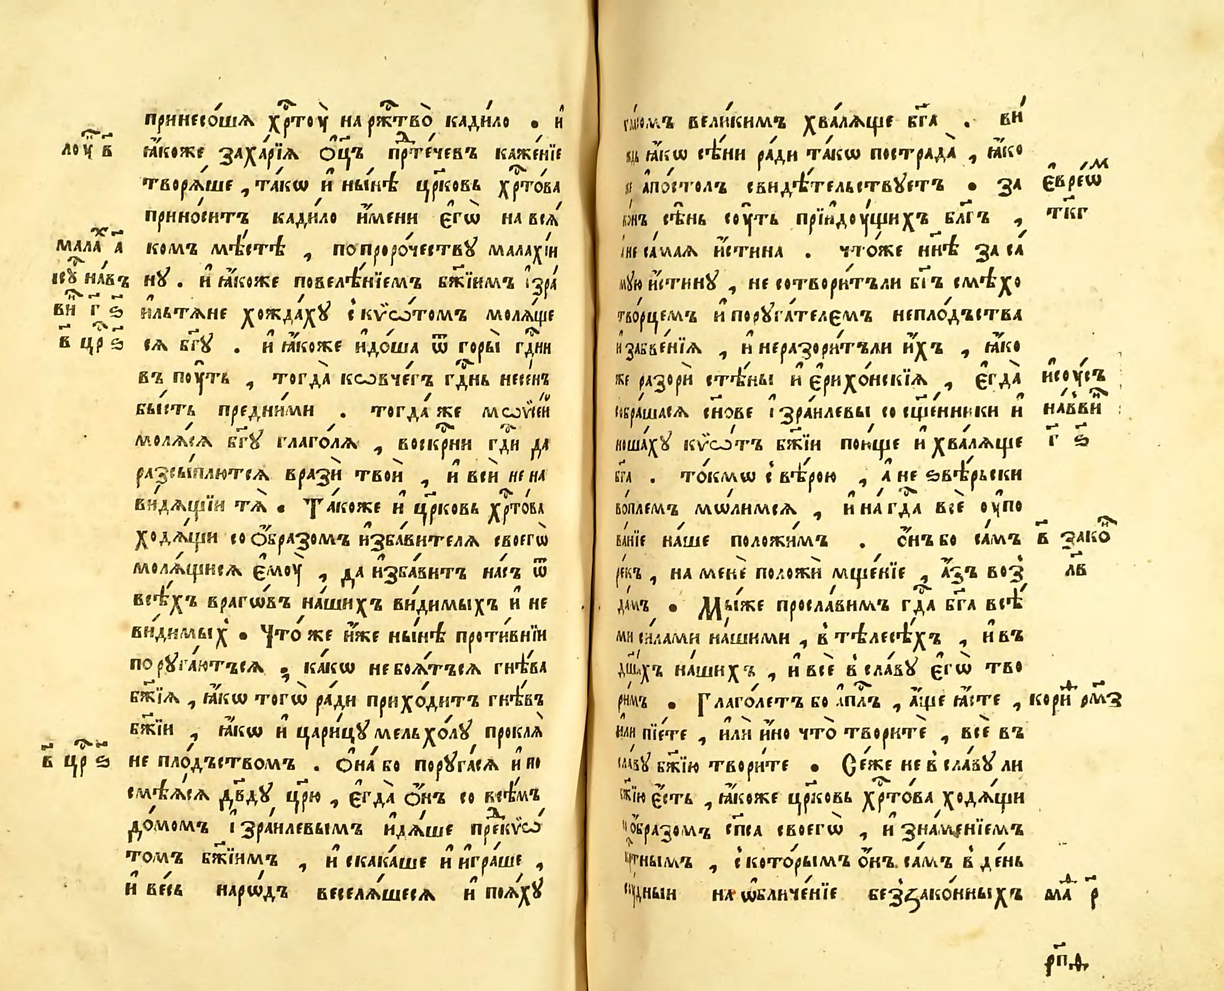 принесо́шѧ хрⷭ҇тꙋ̀ на ржⷭ҇тво̀ кади́ло . и҆
лоу̑ в҃
ꙗ҆́коже заха́рїѧ ѻ҆ц҃ъ прⷣте́чевъ каже́нїе
творѧ́ше , та́кѡ и҆ ны́нѣ цр҃ковь хрⷭ҇то́ва
прино́ситъ кади́ло и҆́мени є҆гѡ̀ на всѧ́
мала́х а҃
комъ мѣ́стѣ , по проро́чествꙋ мала́хїи
нꙋ . и҆ ꙗ҆́коже повелѣ́нїемъ бж҃їимъ і҆зра́
и҆льтѧне хожда́хꙋ с кѵѡ́томъ молѧ́ще
ви҃ г҃ ѕ҃
в҃ црⷭ҇ ѕ҃
сѧ бг҃ꙋ . и҆ ꙗ҆́коже и҆до́ша ѿ горы̀ гдⷭ҇ни
въ пꙋ́ть , тогда̀ ковче́гъ гдⷭ҇нь несе́нъ
бы́сть пре́дними . тогда́ же мѡѷсе́й
молѧ́сѧ бг҃ꙋ глаго́лѧ , воскрⷭ҇нѝ гдⷭ҇и да
разсы́плютсѧ вразѝ твоѝ , и҆ всѝ не на
ви́дѧщїи тѧ̀ . Та́коже и҆ цр҃ковь хрⷭ҇то́ва
ходѧ́щи со ѡ҆́бразомъ и҆зба́вителѧ своегѡ̀
молѧ́щисѧ є҆мꙋ̀ , да и҆зба́витъ на́съ ѿ
всѣ́хъ врагѡ́въ на́шихъ ви́димыхъ и҆ не
ви́димыхъ . Что́ же и҆́же ны́нѣ проти́внїи
порꙋга́ютъсѧ , ка́кѡ не боѧ́тъсѧ гнѣ́ва
бж҃їѧ , ꙗ҆́кѡ тогѡ̀ ра́ди прихо́дитъ гнѣ́въ
бж҃їи , ꙗ҆́кѡ и҆ цари́цꙋ мельхо́лꙋ проклѧ̀
в҃ црⷭ҇ ѕ҃
не пло́дъствомъ . Ѻ҆на́ бо порꙋга́сѧ и҆ по
смѣѧ́сѧ дв҃дꙋ цр҃ю , є҆гда̀ ѻ҆́нъ со всѣ́мъ
до́момъ і҆зра́илевымъ и҆дѧ́ше прⷣекѵѡ́
томъ бж҃їимъ , и҆ скака́ше и҆ и҆гра́ше ,
и҆ ве́сь наро́дъ веселѧ́щесѧ и҆ поѧ́хꙋ
вели́кимъ хвалѧ́ще бг҃а . ви́
ꙗ҆́кѡ сѣ́ни ра́ди та́кѡ пострада̀ , ꙗ҆́ко
а҆по́столъ свидѣ́тельствꙋетъ . за
є҆вре́ѡм
т҃кг
сѣ́нь сꙋ́ть прїидꙋ́щихъ бл҃гъ ,
не са́маѧ и҆́стина . что́же нн҃ѣ за са́
мꙋю и҆́стинꙋ , не сотвори́тъли бг҃ъ смѣ́хо
тво́рцемъ и҆ порꙋга́телемъ непло́дъства
и҆ забве́нїѧ , и҆ неразори́тъли и҆́хъ , ꙗ҆́ко
же разорѝ стѣ́ны и҆ є҆рихо́нскїѧ , є҆гда̀
и҆сꙋ́съ
собра́шасѧ сн҃ове і҆зра́илевы со сщ҃е́нники и҆
на́вви҃
ноша́хꙋ кѵѡ́тъ бж҃їи пою́ще и҆ хвалѧ́ще
г҃ ѕ҃
бг҃а . то́кмѡ с вѣ́рою , а҆ не ѕвѣ́рьски
во́племъ мо́лимсѧ , и҆ на гдⷭ҇а всѐ ᲂу҆по
ва́нїе на́ше поло́жимъ . ѻ҆́нъ бо са́мъ
в҃ зако́н
ре́къ , на менѐ положѝ мще́нїе , а҆́зъ воз̾
лв
да́мъ . Мы́же просла́вимъ гдⷭ҇а бг҃а всѣ́
ми си́лами на́шими , в тѣлесѣ́хъ , и҆ въ
дш҃а́хъ на́шихъ , и҆ всѐ в сла́вꙋ є҆гѡ̀ тво
ри́мъ . Глаго́летъ бо а҆пⷭ҇лъ , а҆́ще ꙗ҆́сте ,
кори́н рм҃з
и҆лѝ пїе́те , и҆лѝ и҆́но что̀ творитѐ , всѐ въ
сла́вꙋ бж҃їю твори́те . Се́же не в сла́вꙋ ли
бж҃їю є҆́сть , ꙗ҆́коже цр҃ковь хрⷭ҇то́ва ходѧ́щи
ѡ҆́бразомъ сп҃са своегѡ̀ , и҆ зна́менїемъ
крⷭ҇тнымъ , с кото́рымъ ѻ҆́нъ са́мъ в де́нь
сꙋ́дныи на ѡ҆бличе́нїе без̾зако́нныхъ
р҃пд